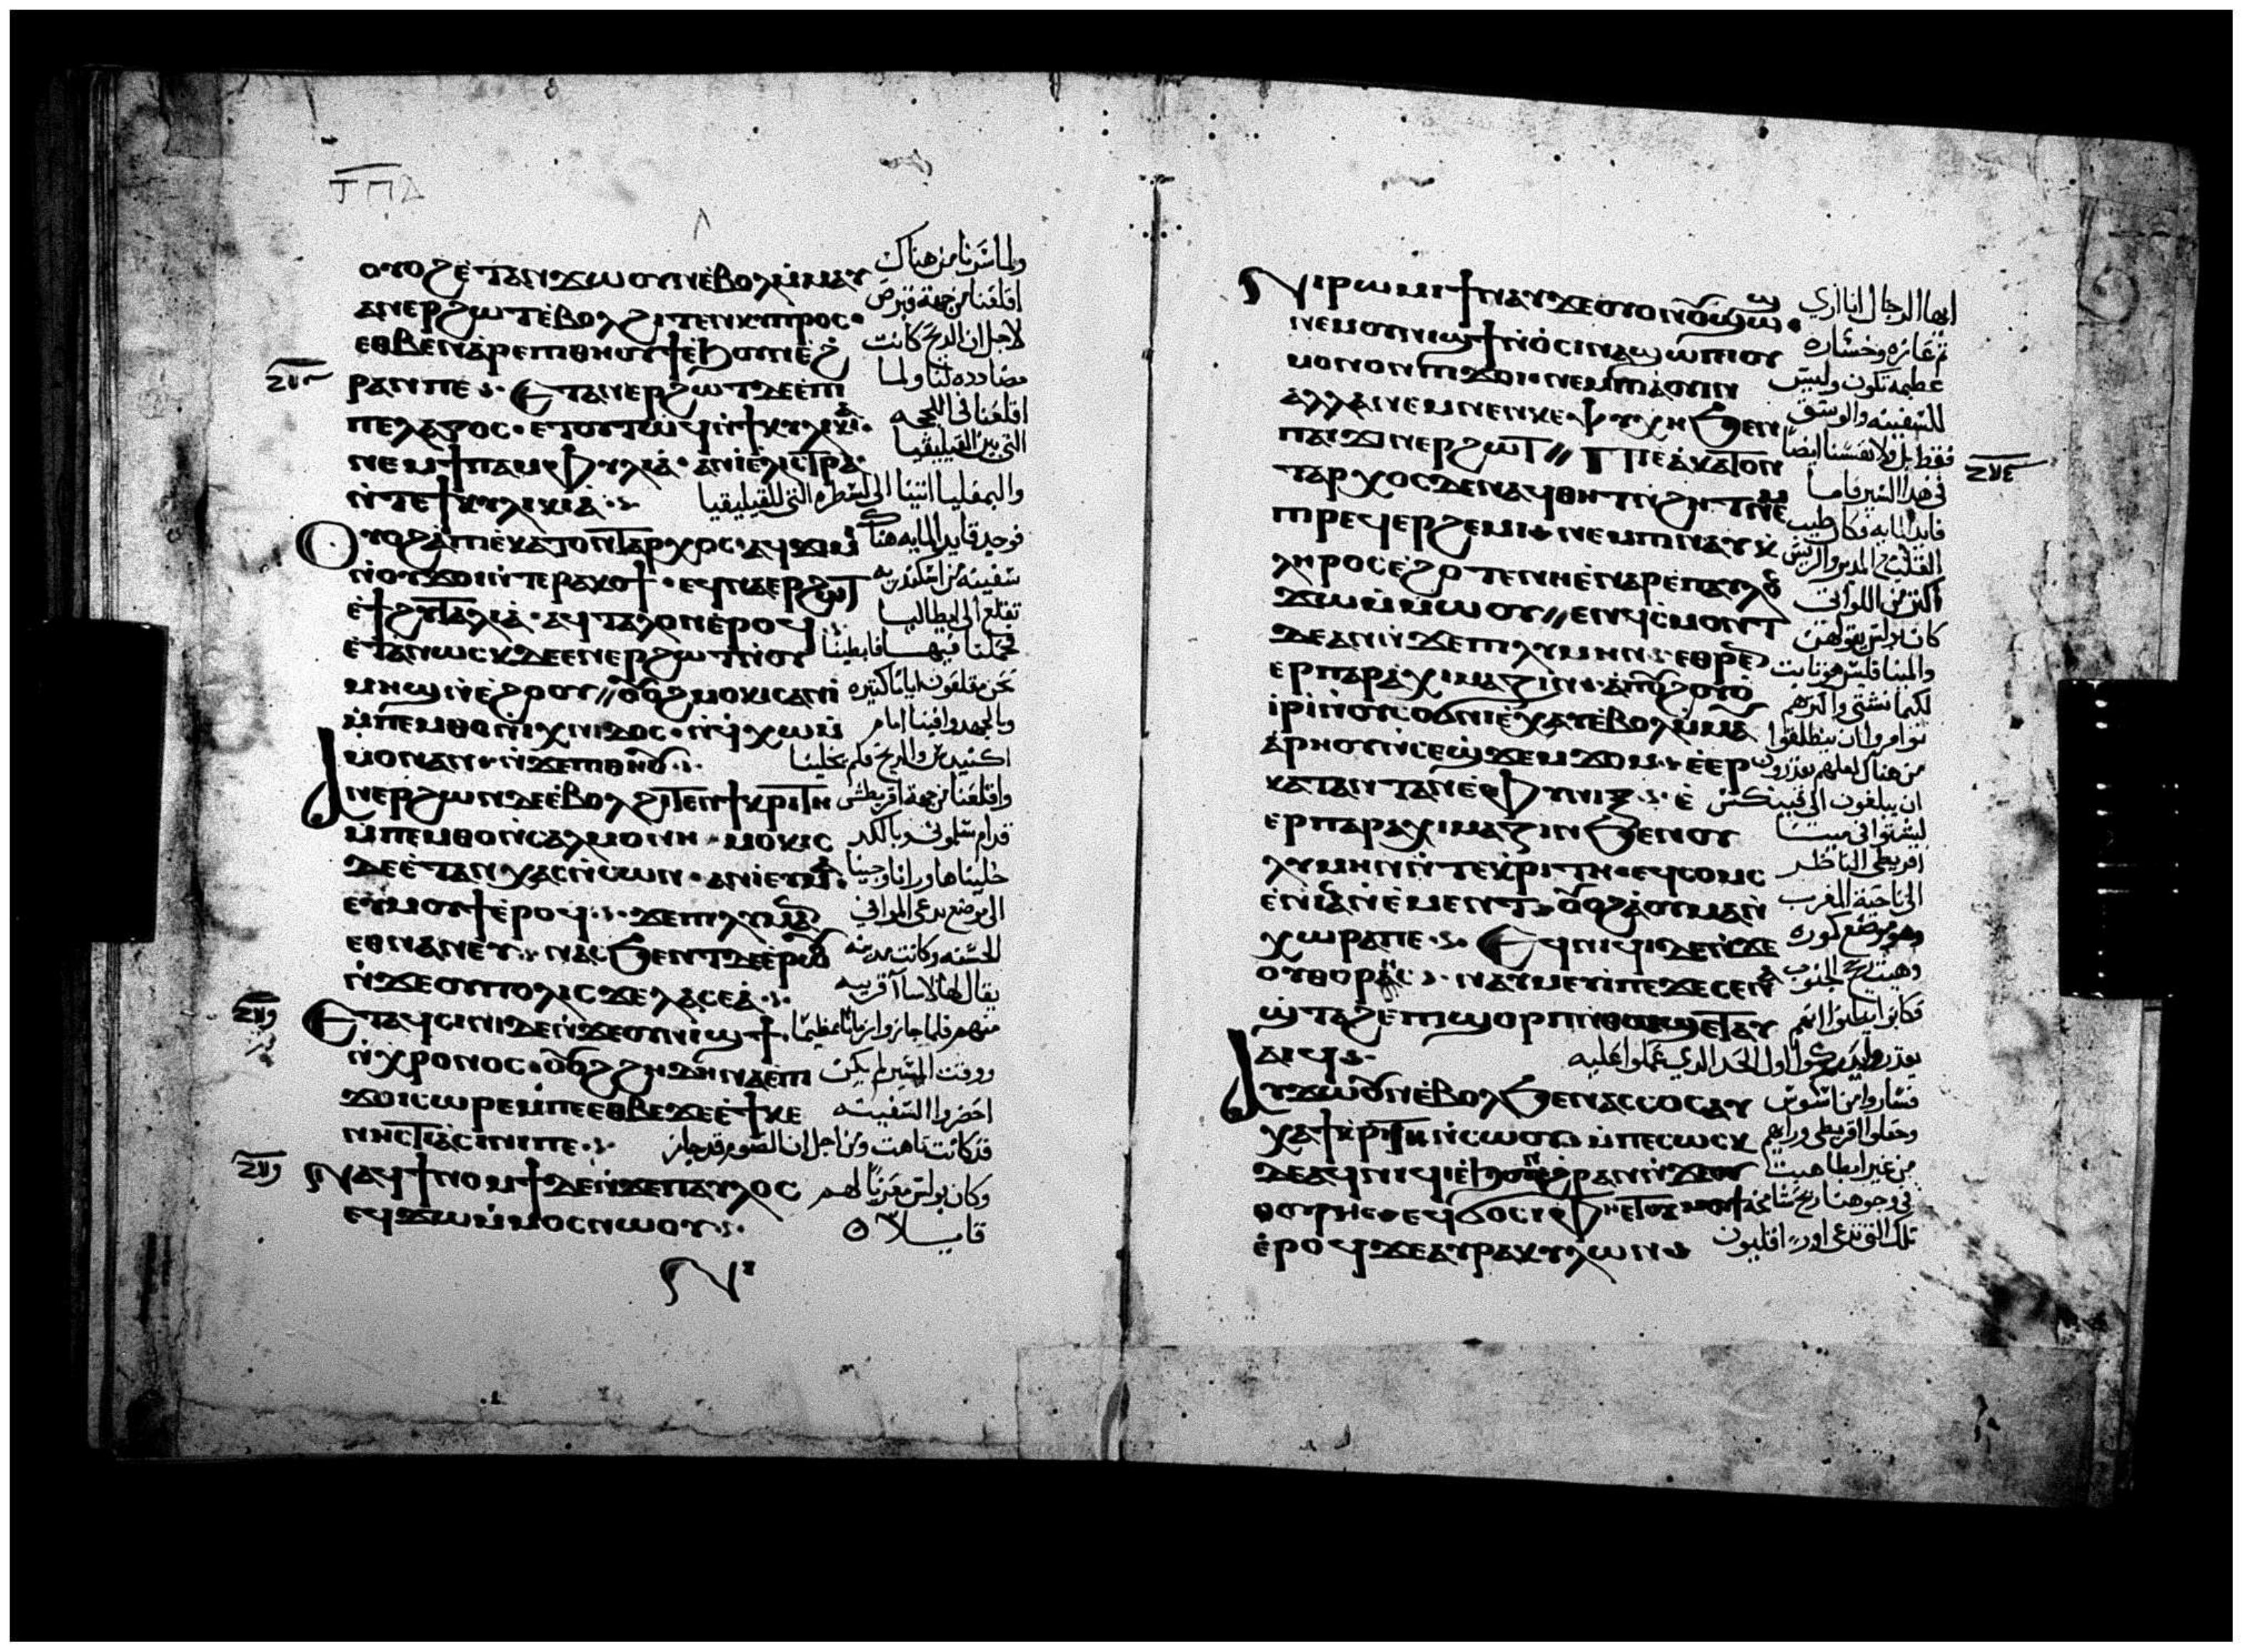 ⲟⲩⲟϩ ⲉ̀ⲧⲁⲛⲭⲱ ⲟⲩⲛ ⲉ̀ⲃⲟⲗ ⲙ̀ⲙⲁⲩ
ⲁⲛⲉⲣϩⲱⲧ ⲉ̀ⲃⲟⲗ ϩⲓⲧⲉⲛ ⲕⲩⲡⲣⲟⲥ
ⲉⲑⲃⲉ ⲛⲁⲣⲉ ⲡⲓⲑⲏⲟⲩ ϯ ⲉ̀ϧⲟⲩⲛ ⲉ̀ϩ
ⲣⲁⲛ ⲡⲉ ⲉⲧⲁⲛⲉⲣϩⲱⲧ ⲇⲉ ⲉ̀ⲡⲓ
ⲡⲉⲗⲁⲅⲟⲥ ⲉⲧⲟⲩⲧⲱϥ ⲛ̀ϯⲕⲩⲗⲓⲕⲓⲁ
ⲛⲉⲙ ϯⲡⲁⲙⲫⲩⲗⲓⲁ ⲁⲛⲓ̀ ⲉ̀ⲗⲓⲥⲧⲣⲁ
ⲛ̀ⲧⲉ ϯⲕⲩⲗⲓⲕⲓⲁ
ⲟⲩⲟϩ ⲁ̀ ⲡⲓⲉ̀ⲕⲁⲧⲟⲛⲧⲁⲣⲭⲟⲥ ⲁϥϫⲓⲙⲓ
ⲛ̀ⲟⲩϫⲟⲓ ⲛ̀ⲧⲉ ⲣⲁⲕⲟϯ ⲉϥⲛⲁⲉⲣϩⲱⲧ
ⲉ̀ϯϩⲩⲧⲁⲗⲓⲁ ⲁϥⲧⲁⲗⲟⲛ ⲉ̀ⲣⲟϥ
ⲉ̀ⲧⲁⲛⲱⲥⲕ ⲇⲉ ⲉⲛⲉⲣϩⲱⲧ ⲛ̀ⲟⲩ
ⲙⲏϣ ⲛ̀ⲉ̀ϩⲟⲟⲩ ⲟⲩⲟϩ ⲙⲟⲕⲓⲥ ⲁⲛⲓ̀
ⲙ̀ⲡⲉⲙⲑⲟ ⲛ̀ⲓⲭⲛⲓⲇⲟⲥ ⲛ̀ϥⲭⲱ ⲙ̀
ⲙⲟⲛ ⲁⲛ ⲛ̀ϫⲉ ⲡⲓⲑⲏⲟⲩ
ⲁⲛⲉⲣϩⲱⲧ ⲇⲉ ⲉ̀ⲃⲟⲗ ϩⲓⲧⲉⲛ ϯⲕⲣⲓⲧⲏ
ⲙ̀ⲡⲉⲙⲑⲟ ⲛ̀ⲥⲁⲗⲙⲟⲛⲏ ⲙⲟⲕⲓⲥ
ⲇⲉ ⲉ̀ⲧⲁⲛⲭⲁⲥ ⲛ̀ⲥⲱⲛ ⲁⲛⲓ̀ ⲉⲩⲙⲁ
ⲉⲩⲙⲟⲩϯ ⲉ̀ⲣⲟϥ ϫⲉ ⲡⲓⲗⲩⲙⲏⲛ
ⲉⲑⲛⲁⲛⲉⲩ ⲛⲁⲥϧⲉⲛⲧ ⲇⲉ ⲉ̀ⲣⲱⲟⲩ
ⲛ̀ϫⲉ ⲟⲩⲡⲟⲗⲓⲥ ϫⲉ ⲗⲁⲥⲉⲁ
ⲉⲧⲁϥⲥⲓⲛⲓ ⲇⲉ ⲛ̀ϫⲉ ⲟⲩⲛⲓϣϯ
ⲛ̀ⲭⲣⲟⲛⲟⲥ ⲟⲩⲟϩ ϩⲏⲇⲏ ⲛⲁⲉ̀ ⲡⲓ
ϫⲟⲓ ⲥⲱⲣⲉⲙ ⲡⲉ ⲉⲑⲃⲉ ϫⲉ ⲉ̀ ϯⲕⲉ
ⲛⲏⲥⲧⲓⲁ ⲥⲓⲛⲓ ⲡⲉ
ⲛⲁϥϯⲛⲟⲙϯ ⲇⲉ ⲛ̀ϫⲉ ⲡⲁⲩⲗⲟⲥ
ⲉϥϫⲱ ⲙ̀ⲙⲟⲥ ⲛⲱⲟⲩ
ولما سرنا من هناك
اقلعنا من جهة قبرص
لاجل ان الريح كانت
مضادده لنا ولما
اقلعنا في اللجه
التي بين القيليقيا
والبمفليا اتينا الى لسطره التي للقيليقيا
فوجد قايد المايه هناك
سفينه من اسكندريه
تقلع الى ايطاليا
فحملنا فيها فابطينا
نحن مقلعون اياما كثيره
وبالجهد وافينا امام
اكنيدس والريح فلم تخلينا
واقلعنا من جهة اقريطش
قدام سلموني وبالكد
خلينا ها ورانا وجينا
الى موضع يدعى المواني
الحسنه وكانت مدينه
يقال لها لاسا آ قريبه
منهم فلما جازوا زمانا عظيما
ووقت المسير لم يكن
احضروا السفينه
قد كانت تاهت ومن اجل ان الصوم قد جاز
وكان بولس معزيا لهم
قايلا
ⲛⲓⲣⲱⲙⲓ ϯⲛⲁⲩ ϫⲉ ⲟⲩⲟⲛ ⲟⲩϣⲱϣ
ⲛⲉⲙ ⲟⲩⲛⲓϣϯ ⲛ̀ⲟ̀ⲥⲓ ⲛⲁϣⲱⲡⲓ ⲟⲩ
ⲙⲟⲛⲟⲛ ⲡⲓϫⲟⲓ ⲛⲉⲙ ⲡⲓⲁ̀ⲟⲩⲓⲛ
ⲁⲗⲗⲁ ⲛⲉⲙ ⲛⲉⲛⲕⲉⲯⲩⲭⲏ ϧⲉⲛ
ⲡⲁⲓϫⲓⲛⲉⲣϩⲱⲧ ⲡⲓⲉ̀ⲕⲁⲧⲟⲛ
ⲧⲁⲣⲭⲟⲥ ⲇⲉ ⲛⲁϥⲑⲏⲧ ⲛ̀ϩⲏⲧ ⲛⲉⲙ
ⲡⲓⲣⲉϥⲉⲣϩⲉⲙⲓ ⲛⲉⲙ ⲡⲓⲛⲁⲩⲕ
ⲗⲏⲣⲟⲥ ⲉ̀ϩⲟⲧⲉ ⲛⲏ ⲉ̀ⲛⲁⲣⲉ ⲡⲁⲩⲗⲟⲥ
ϫⲱ ⲙ̀ⲙⲱⲟⲩ ⲉⲛϥⲥⲙⲟⲛⲧ
ⲇⲉ ⲁⲛ ⲛ̀ϫⲉ ⲡⲓⲗⲩⲙⲏⲛ ⲉⲑⲣⲉ
ⲉⲣⲡⲁⲣⲁⲭⲓⲙⲁⲍⲓⲛ ⲁ̀ ⲡⲟⲩϩⲟⲩⲟ̀
ⲓⲣⲓ ⲛ̀ⲟⲩⲥⲟϭⲛⲓ ⲉ̀ⲭⲁⲩ ⲉ̀ⲃⲟⲗ ⲙ̀ⲙⲁⲩ
ⲁⲣⲏⲟⲩ ⲛ̀ⲥⲉϣϫⲉⲙϫⲟⲙ ⲉ̀ⲉⲣ
ⲕⲁⲧⲁⲛⲧⲁⲛ ⲉ̀ⲫⲩⲛⲓⲝ ⲉ̀
ⲉⲣⲡⲁⲣⲁⲭⲓⲙⲁⲍⲓⲛ ϧⲉⲛ ⲟⲩ
ⲗⲩⲙⲏⲛ ⲛ̀ⲧⲉ ⲕⲣⲓⲧⲏ ⲉϥⲥⲟⲙⲥ
ⲉ̀ⲛⲓⲥⲁ ⲛ̀ⲉ̀ⲙⲉⲛⲧ ⲟⲩⲟϩ ⲁ̀ⲟⲩⲙⲁ ⲛ̀
ⲭⲱⲣⲁ ⲡⲉ ⲉϥⲛⲓϥⲓ ⲇⲉ ⲛ̀ϫⲉ
ⲟⲩⲑⲟⲣⲏⲥ ⲛⲁⲩⲙⲉⲩⲓ ⲡⲉ ϫⲉ ⲥⲉⲛⲁ
ϣⲧⲁϩⲉ ⲡⲓϣⲟⲣⲡ ⲛ̀ⲑⲱϣ ⲉⲧⲁⲩ
ⲁⲓϥ
ⲁⲩⲭⲱ ⲟⲩⲛ ⲉ̀ⲃⲟⲗ ϧⲉⲛ ⲁⲥⲥⲟⲥ ⲁⲩ
ⲭⲁ ϯⲕⲣⲓⲧⲏ ⲛ̀ⲥⲱⲟⲩ ⲙ̀ⲡⲉϥⲱⲥⲕ
ⲇⲉ ⲁϥⲛⲓϥⲓ ⲉ̀ϧⲟⲩⲛ ⲉ̀ϩⲣⲁⲛ ⲛ̀ϫⲉ ⲟⲩ
ⲑⲟⲩⲣⲏⲥ ⲉϥϭⲟⲥⲓ ⲫⲏⲉⲧⲟⲩⲙⲟⲩϯ
ⲉ̀ⲣⲟϥ ϫⲉ ⲁⲩⲣⲁⲕⲩⲗⲱⲛ
ايها الرجال انا ارى
ثم عازه وخساره
عظيمه تكون وليس
للسفينه والوسق
فقط بل ولانفسنا ايضا
في هذا السير فاما
قايد المايه فكان طيب
القلب مع المدبر والريس
اكثر من اللواتي
كان بولس يقولهن
والمينا فليس هو ثابت
لكيما نشتي واكثرهم
توامروا ان ينطلقوا
من هناك لعلهم يقدرون
ان يبلغون الى فينكس
ليشتوا في مينا
اقريطي الناظر
الى ناحية المغرب
وهو موضع كوره
وهبت ريح الجنوب
فكانوا يظنوا انهم
يقدروا يدركوا اول الحد الذي عملوا عليه
فساروا من اسوس
وخلوا اقريطي وراهم
من غير ابطا هبت
في وجوهنا ريح شامخه
تلك التي تدعى اوراقليون